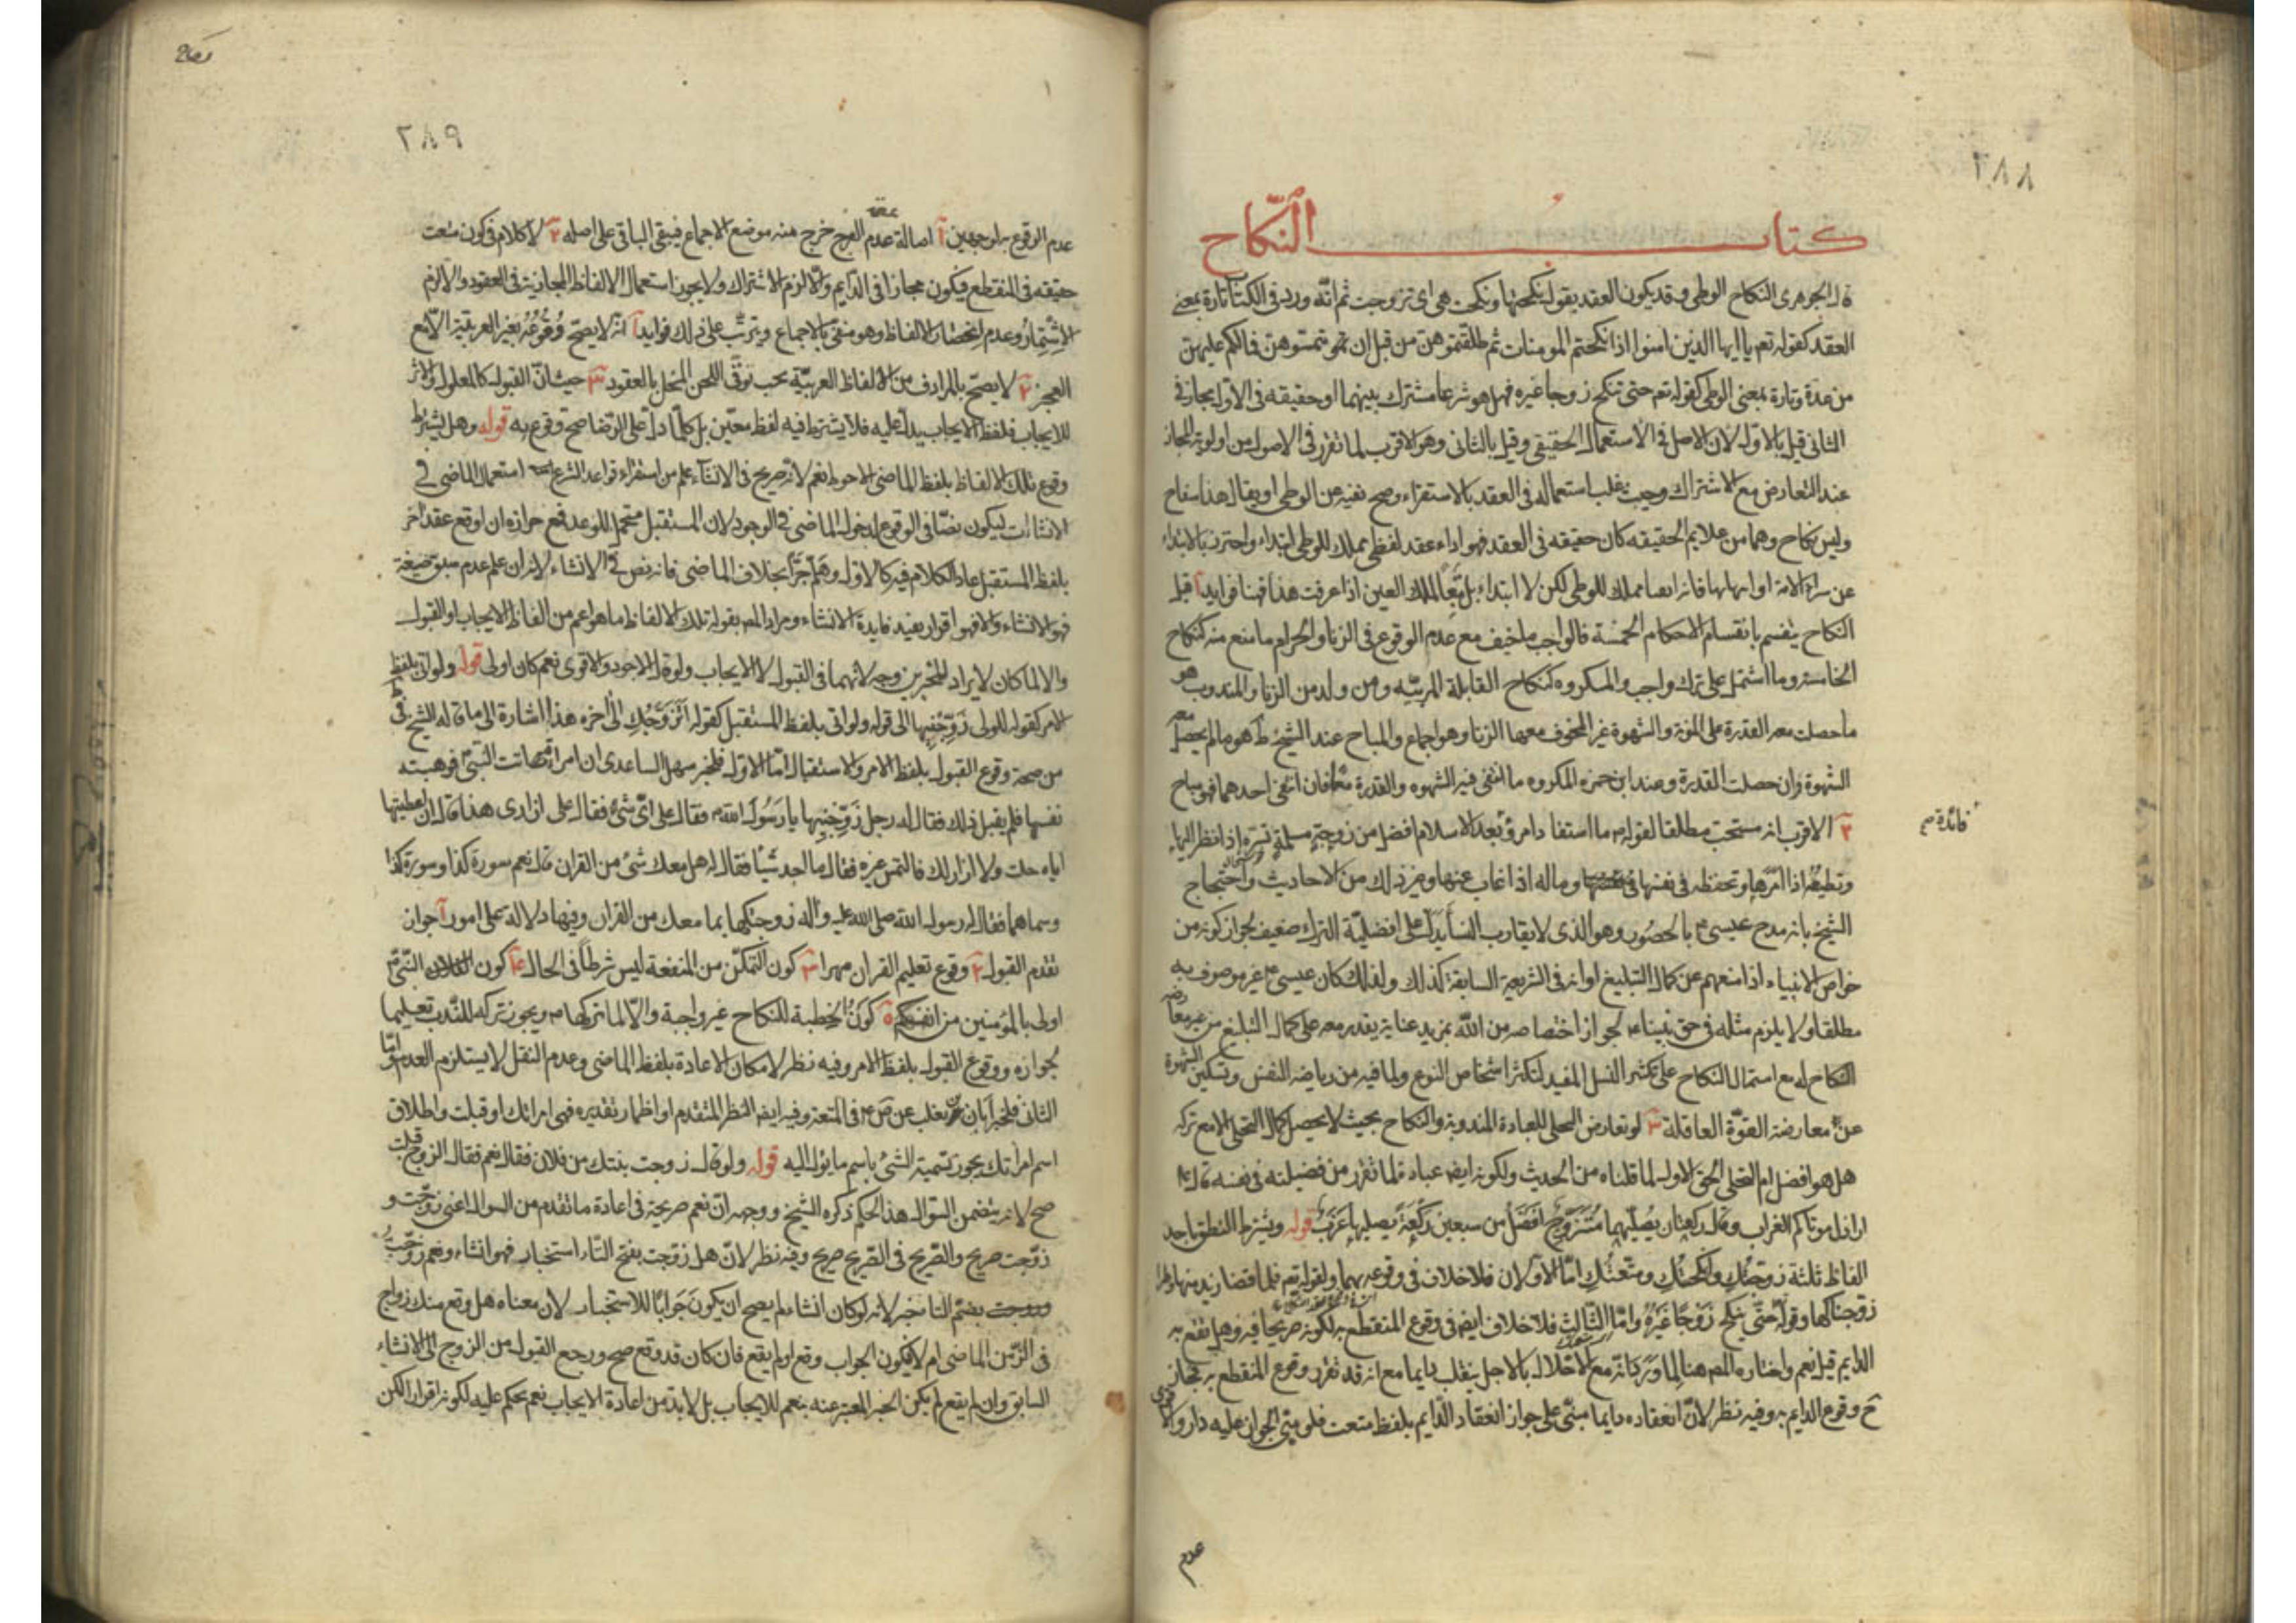 ٢٨٨
كتاب النكاح
قال الجوهرى النكاح الوطى وقد يكون العقد يقول نكحتها ونكحت هى اى تزوجت ثم انه ورد فى الكتاب تارة بمعنى
العقد كقوله تعم يا ايها الذين امنوا اذا نكحتم المومنات ثم طلقتموهن من قبل ان تمسوهن فما لكم عليهن
من عدة وتارة بمعنى الوطى كقوله تعم حتى تنكح زوجا غيره فهل هو شرعا مشترك بينهما او حقيقه فى الاول مجاز فى
الثانى قيل بالاول لان الاصل فى الاستعمال الحقيقى وقيل بالثانى وهو الاقرب لما تقرر فى الاصول من اولوية المجاز
عند التعارض مع الاشتراك وحيث يغلب استعماله فى العقد بالاستقراء وصح نفيه عن الوطى او يقال هذا سفاح
وليس نكاح وهما من علايم الحقيقه كان حقيقه فى العقد فهو اذا عقد لفظى مملك للوطى ابتداء واحترز بالابتداء
عن شراء الامة او اتهابها فانه ايضا مملك للوطى لكن لا ابتداء بل تبعا لملك العين اذا عرفت هذا فهنا فوايد آ قيل
النكاح ينقسم بانقسام الاحكام الخمسة فالواجب ما خيف مع عدم الوقوع فى الزنا والحرام ما منع منه كنكاح
الخامسة وما اشتمل على ترك واجب والمكروه كنكاح القابلة المربيه ومن ولد من الزنا والمندوب هو
ما حصلت معه القدرة على المونة والشهوة غير المخوف معها الزنا وهو اجماع والمباح عند الشيخ ط هو ما لم يحصل معه
الشهوة وان حصلت القدرة وعند ابن حمزه المكروه ما انتفى فيه الشهوه والقدرة معا فان انتفى احدهما فهو مباح
٢ الاقرب انه مستحب مطلقا لقوله م ما استفاد امرؤ بعد الاسلام افضل من زوجة مسلمة تسره اذا نظر اليها
فائدة م
وتطيعه اذا امرها وتحفظه فى نفسها وماله اذا غاب عنها وغير ذلك من الاحاديث واحتجاج
الشيخ بانه مدح عيسى م بالحصور وهو الذى لا يقارب النسا يدل على افضلية الترك ضعيف لجواز كونه من
خواص الانبياء اذا منعهم عن كمال التبليغ او انه فى الشريعة السابقة كذلك ولذلك كان عيسى م غير موصوف به
مطلقا ولا يلزم مثله فى حق نبينا م لجواز اختصاصه من الله بمزيد عناية يقدر معه على كمال التبليغ من غير معارضه
النكاح له مع اشتمال النكاح على تكثير النسل المفيد لتكثر اشخاص النوع ولما فيه من رياضه النفس وتسكين الشهوة
عن معارضة القوة العاقلة ٣ لو تعارض التخلى للعبادة المندوبة والنكاح بحيث لا يحصل كمال التخلى الا مع تركه
هل هو افضل ام التخلى الحق الاول لما قلناه من الحديث ولكونه ايضا عبادة لما تقرر من فضيلته فى نفسه قال م
اراذل موتاكم العزاب وقال ركعتان يصليهما متزوج افضل من سبعين ركعة يصليها عزب قوله ويشترط النطق باحد
الفاظ ثلثة زوجتك وانكحتك ومتعتك اما الاولان فلا خلاف فى وقوعه بهما ولقوله تعم فلما قضى زيد منها وطرا
زوجناكها وقوله حتى تنكح زوجا غيره واما الثالث فلا خلاف ايضا فى وقوع المنقطع به لكونه صريحا فيه وهل يقع به
الدايم قيل نعم واختاره المص هنا لما ورد انه مع الاخلال بالاجل ينقلب دايما مع انه قد تقرر وقوع المنقطع به فجاز
ح وقوع الدايم به وفيه نظر لان انعقاده دايما مبنى على جواز انعقاد الدايم بلفظ متعت فلو بنى الجواز عليه دار والاقوى
عدم
٢٨٩
عدم الوقوع به لوجهين آ اصالة عدم الفرج خرج منه موضع الاجماع فيبقى الباقى على اصله ٢ لا كلام فى كون متعت
حقيقه فى المنقطع فيكون مجازا فى الدايم والا لزم الاشتراك ولا يجوز استعمال الالفاظ المجازية فى العقود والا لزم
الانتشار وعدم انحصار الالفاظ وهو منفى بالاجماع ويترتب على ذلك فوايد آ انه لا يصح وقوعه بغير العربية الا مع
العجز ٢ لا يصح بالمرادف من الالفاظ العربية يجب توقى اللحن المخل بالعقود ٣ حيث ان القبول كالمعلول والاثر
للايجاب فلفظ الايجاب يدل عليه فلا يشترط فيه لفظ معين بل كلما دل على الرضا صح وقوعه به قوله وهل يشترط
وقوع تلك الالفاظ بلفظ الماضى الاحوط نعم لانه صريح فى الانشاء علم من استقراء قواعد الشرع استعمال الماضى فى
الانشاات ليكون نصا فى الوقوع لدخول الماضى فى الوجود لان المستقبل محتمل للوعد فمع جوازه ان اوقع عقد اخر
بلفظ المستقبل عاد الكلام فيه كالاول وهلم جرا بخلاف الماضى فانه نص فى الانشاء لانه ان علم عدم سبق صيغة
فهو الانشاء والا فهو اقرار يفيد فايدة الانشاء ومراد المص بقوله تلك الالفاظ ما هو اعم من الفاظ الايجاب او القبول
والا لما كان لايراد الخبرين وجه لانهما فى القبول لا الايجاب ولو قال الاجود والاقوى نعم كان اولى قوله ولو اتى بلفظ
الامر كقوله للولى زوجنيها الى قوله ولو اتى بلفظ المستقبل كقوله اتزوجك الى اخره هذا اشارة الى ما قاله الشيخ فى ط
من صحة وقوع القبول بلفظ الامر والاستقبال اما الاول فلخبر سهل الساعدى ان امراة اتت النبى م فوهبته
نفسها فلم يقبل ذلك فقال له رجل زوجنيها يا رسول الله م فقال على اى شئ فقال على ازارى هذا قال ان اعطيتها
اياه جلست ولا ازار لك فالتمس غيره فقال ما اجد شيئا فقال له هل معك شئ من القران قال نعم سورة كذا وسورة كذا
وسماهما فقال له رسول الله صلى الله عليه واله زوجتكها بما معك من القران وفيها دلالة على امور آ جواز
تقدم القبول ٢ وقوع تعليم القران مهرا ٣ كون التمكن من المنفعة ليس شرطا فى الحال ٤ كون النبى م
اولى بالمؤمنين من انفسهم ٥ كون الخطبة للنكاح غير واجبة والا لما تركها م ويجوز تركه للندب تعليما
لجوازه ووقوع القبول بلفظ الامر وفيه نظر لامكان الاعادة بلفظ الماضى وعدم النقل لا يستلزم العدم واما
الثانى فلخبر ابان بن تغلب عن ص م فى المتعة وفيه ايضا النظر المتقدم او اظهار تقديره فهى امراتك او قبلت واطلاق
اسم امراتك يجوز تسمية الشئ باسم ما يؤل اليه قوله ولو قال زوجت بنتك من فلان فقال نعم فقال الزوج قبلت
صح لانه يتضمن السؤال هذا الحكم ذكره الشيخ ووجهه ان نعم صريحة فى اعادة ما تقدم من السوال اعنى زوجت و
زوجت صريح والصريح فى الصريح صريح وفيه نظر لان هل زوجت بفتح التاء استخبار فهو انشاء ونعم زوجت
بضم التا خبر لانه لو كان انشاء لم يصح ان يكون جوابا للاستخبار لان معناه هل وقع منك زواج
فى الزمن الماضى ام لا فيكون الجواب وقع او لم يقع فان كان قد وقع صح ورجع القبول من الزوج الى الانشاء
السابق وان لم يقع لم يكن الخبر المعبر عنه بنعم للايجاب بل لا بد من اعادة الايجاب نعم يحكم عليه لكونه اقرارا لكن